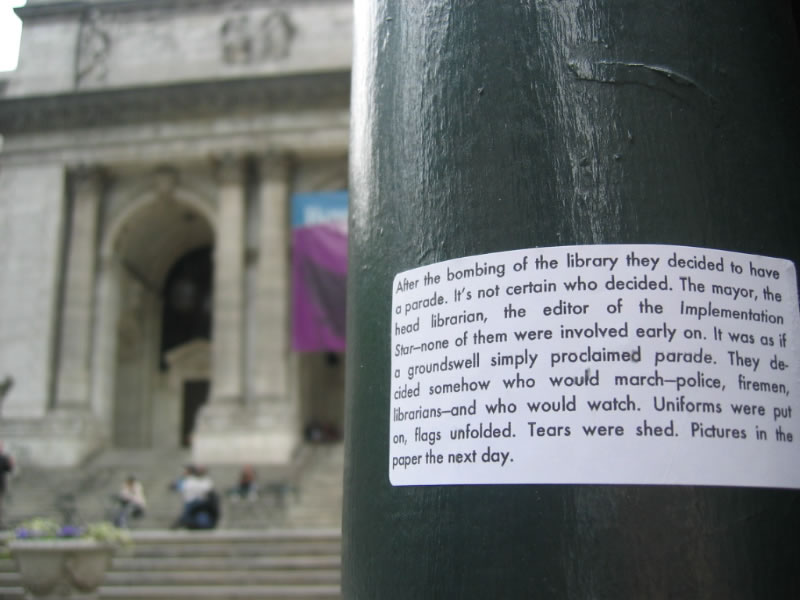 After the bombing of the library they decided to have
a parade. It's not certain who decided. The mayor, the
head librarian, the editor of the Implementation
Star—none of them were involved early on. It was as if
a groundswell simply proclaimed parade. They de-
cided somehow who would march—police, firemen,
librarians—and who would watch. Uniforms were put
on, flags unfolded. Tears were shed. Pictures in the
paper the next day.